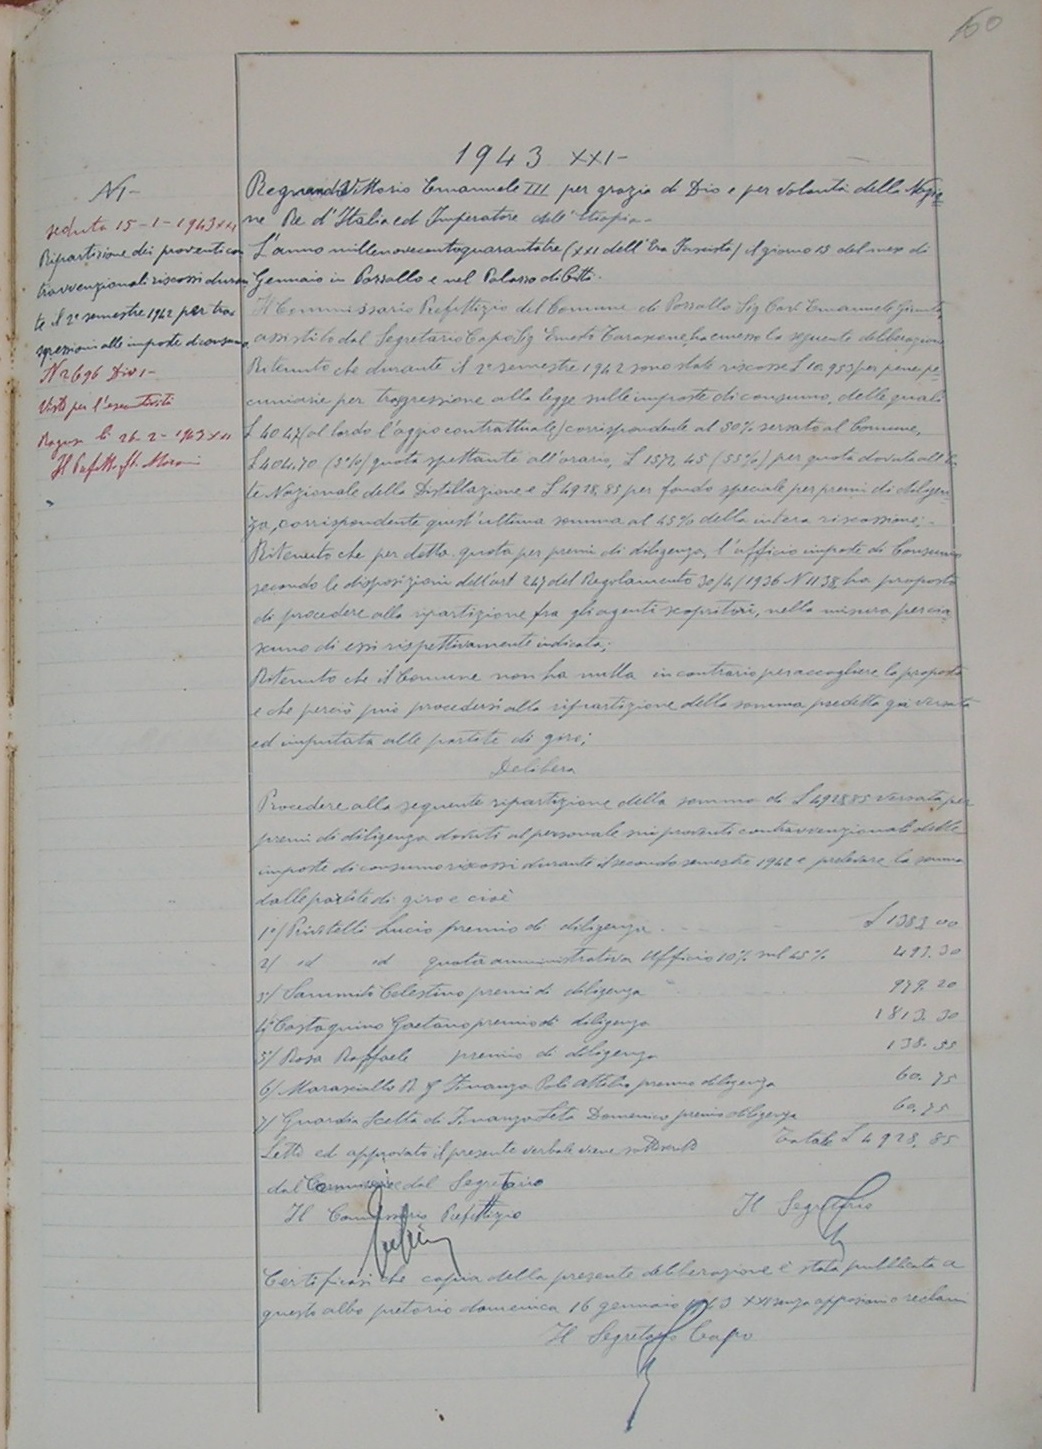 160
1943 XXI-
N 1-
seduta 15-1-1943 XXI
Ripartizione dei proventi con
travvenzionali riscossi duran
te il 2° semestre 1942 per tra
sgressioni alle imposte di consumo
N 2696 Div 1-
Visto per l'esecutività
Ragusa li 26-2-1943 XXI
Il Prefetto
Regnando Vittorio Emanuele III per grazia di Dio e per volontà della Nazio
ne Re d'Italia ed Imperatore dell'Etiopia-
L'anno millenovecentoquarantatre (XXI dell'Era Fascista) il giorno 15 del mese di
Gennaio in Pozzallo e nel Palazzo di Città.
Il Commissario Prefettizio del Comune di Pozzallo Sig. Cav. Emanuele
assistito dal Segretario Capo Sig. ha emesso la seguente deliberazione
Ritenuto che durante il 2° semestre 1942 sono state riscosse £ 10.953 per pene pe
cuniarie per trasgressione alla legge sulle imposte di consumo, delle quali
£ 4047 (al lordo l'aggio contrattuale) corrispondente al 50% versato al Comune,
£ 404.70 (5%) quota spettante all'erario, £ 1572,45 (55%) per quota dovuta all'En
te Nazionale della Distillazione e £ 4928,85 per fondo speciale per premi di diligen
za, corrispondente quest'ultima somma al 45% della intera riscossione;-
Ritenuto che per detta quota per premi di diligenza, l'ufficio imposte di Consumo
secondo le disposizioni dell'art 247 del Regolamento 30/4/1936 N 1138, ha proposto
di procedere alla ripartizione fra gli agenti scopritori, nella misura per cia
scuno di essi rispettivamente indicata;
Ritenuto che il Comune non ha nulla in contrario per accogliere la proposta
e che perciò può procedersi alla ripartizione della somma predetta già versata
ed imputata alle partite di giro;
Delibera
Procedere alla seguente ripartizione della somma di £ 4928,85 versata per
premi di diligenza dovuti al personale sui proventi contravvenzionali delle
imposte di consumo riscossi durante il secondo semestre 1942 e prelevare la somma
dalle partite di giro e cioè
1°/ Lucio premio di diligenza £ 1383,00
2/ id id quota amministrativa Ufficio 10% sul 45% 493.30
3°/ Sammito Celestino premi di diligenza 979.20
4° Castagnino Gaetano premio di diligenza 1813.30
5°/ Rosa Raffaele premio di diligenza 138.55
6/ Maresciallo R. G. Finanza Poli Attilio premio diligenza 60.75
7/ Guardia Scelta di Finanza Domenico premio diligenza 60.75
Letto ed approvato il presente verbale viene sottoscritto Totale £ 4928,85
dal Commissario e dal Segretario
Il Commissario Prefettizio Il Segretario
Certificasi che copia della presente deliberazione è stata pubblicata a
questo albo pretorio domenica 16 gennaio 1943 XXI senza opposizioni o reclami
Il Segretario Capo